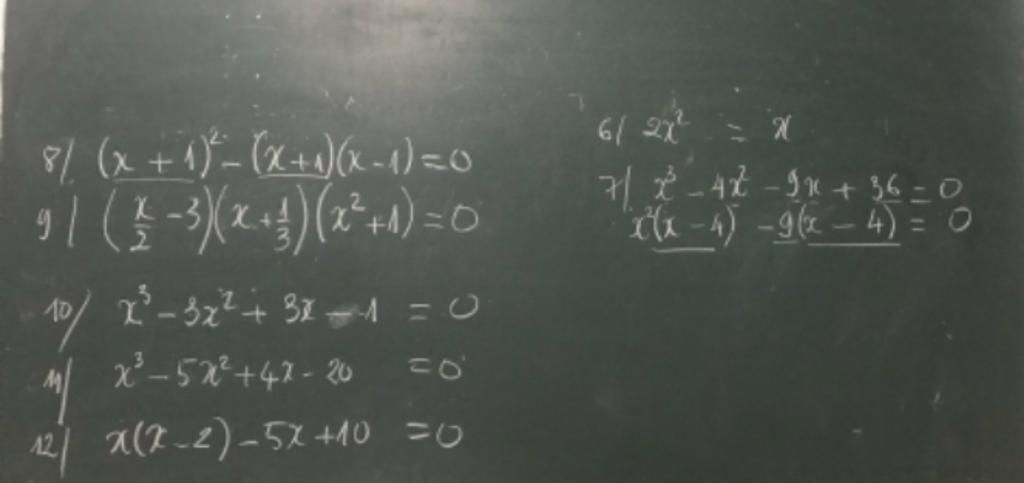 8/ (x + 1)² - (x+1)(x-1) = 0
9/ (x/2 - 3)(x + 1/3)(x² + 1) = 0
10/ x³ - 3x² + 3x - 1 = 0
11/ x³ - 5x² + 4x - 20 = 0
12/ x(x-2) - 5x + 10 = 0
6/ 2x² = x
7/ x³ - 4x² - 9x + 36 = 0
x²(x - 4) - 9(x - 4) = 0